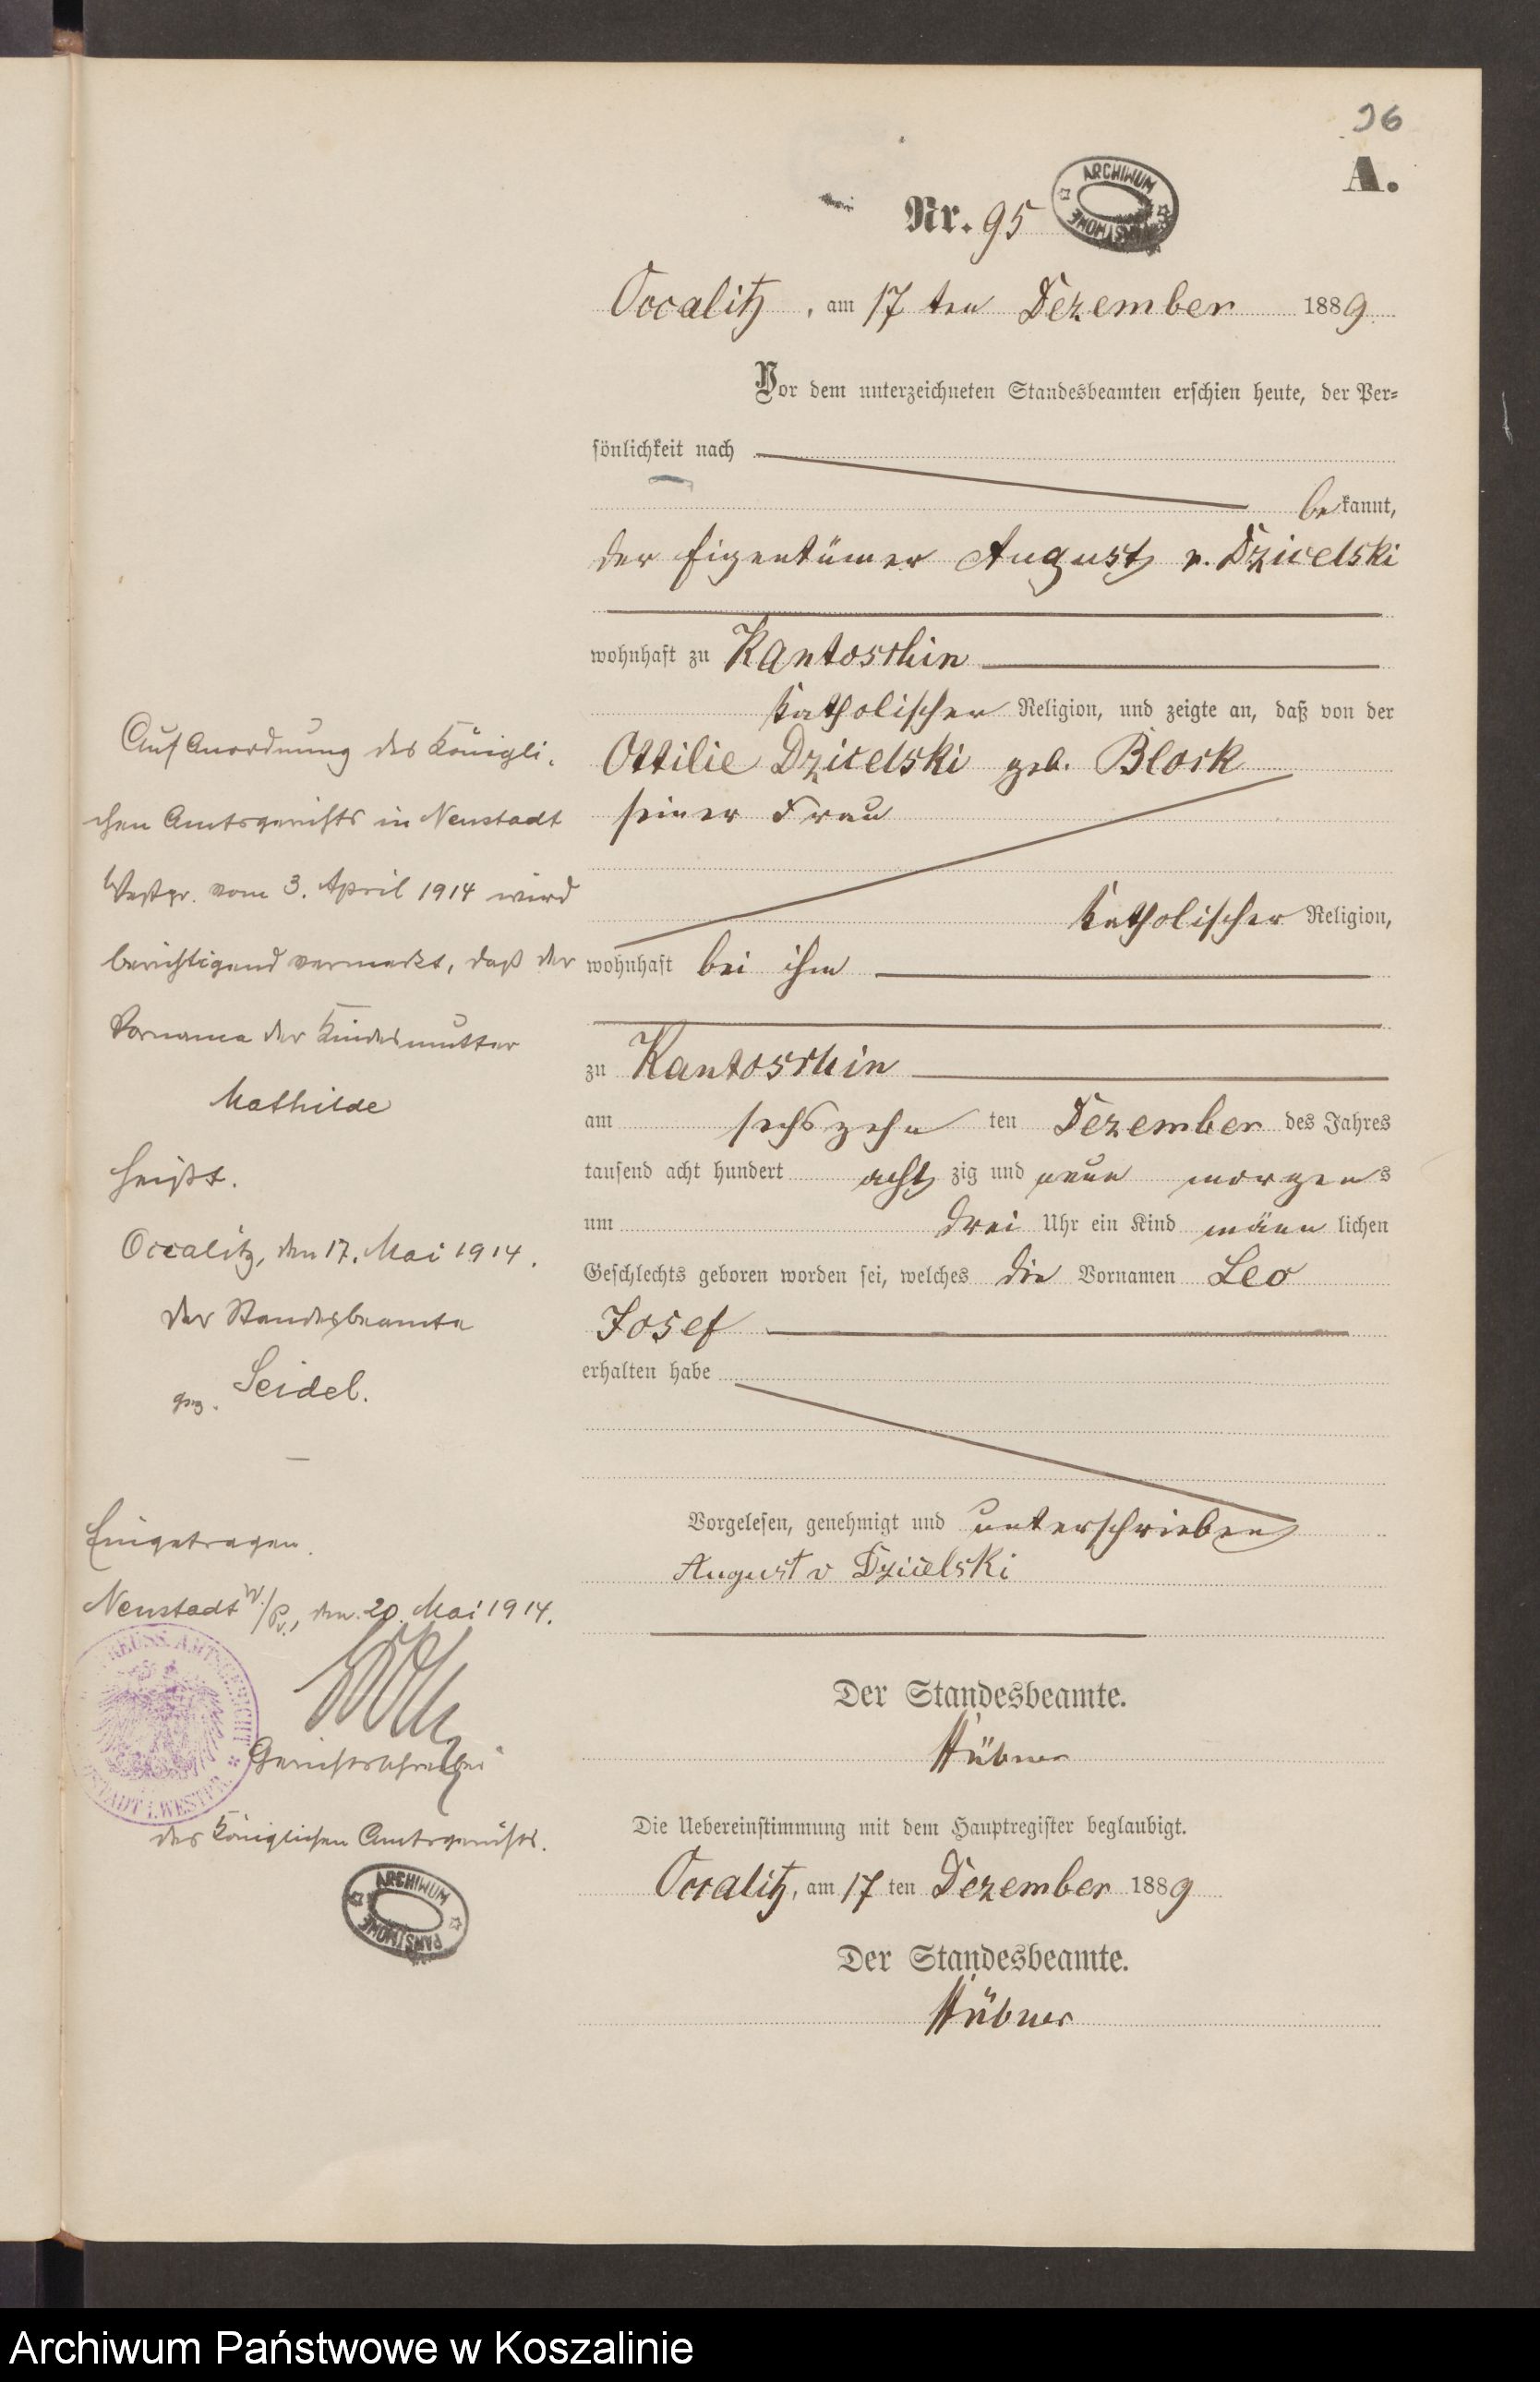 96
A.
Nr. 95
ARCHIWUM PAŃSTWOWE
Occalitz, am 17 ten Dezember 1889
Vor dem unterzeichneten Standesbeamten erschien heute, der Per-
sönlichkeit nach
bekannt,
der Eigentümer August v. Dzicelski
wohnhaft zu Kantoschin
katholischer Religion, und zeigte an, daß von der
Ottilie Dzicelski geb. Block
seiner Frau
katholischer Religion,
wohnhaft bei ihm
zu Kantoschin
am sechszehn ten Dezember des Jahres
tausend acht hundert acht zig und neun morgens
um drei Uhr ein Kind männlichen
Geschlechts geboren worden sei, welches die Vornamen Leo
Josef
erhalten habe
Vorgelesen, genehmigt und unterschrieben
August v Dzicelski
Der Standesbeamte.
Hübner
Die Uebereinstimmung mit dem Hauptregister beglaubigt.
Occalitz, am 17 ten Dezember 1889
Der Standesbeamte.
Hübner
Auf Anordnung des Königli-
chen Amtsgerichts in Neustadt
Westpr. vom 3. April 1914 wird
berichtigend vermerkt, daß der
Vorname der Kindesmutter
Mathilde
heißt.
Occalitz, den 17. Mai 1914.
Der Standesbeamte
gez. Seidel.
Eingetragen.
Neustadt W./Pr., den 20. Mai 1914.
PREUSS. AMTSGERICHT
STADT I. WESTPR.
Gerichtsschreiber
des Königlichen Amtsgerichts.
ARCHIWUM PAŃSTWOWE
Archiwum Państwowe w Koszalinie